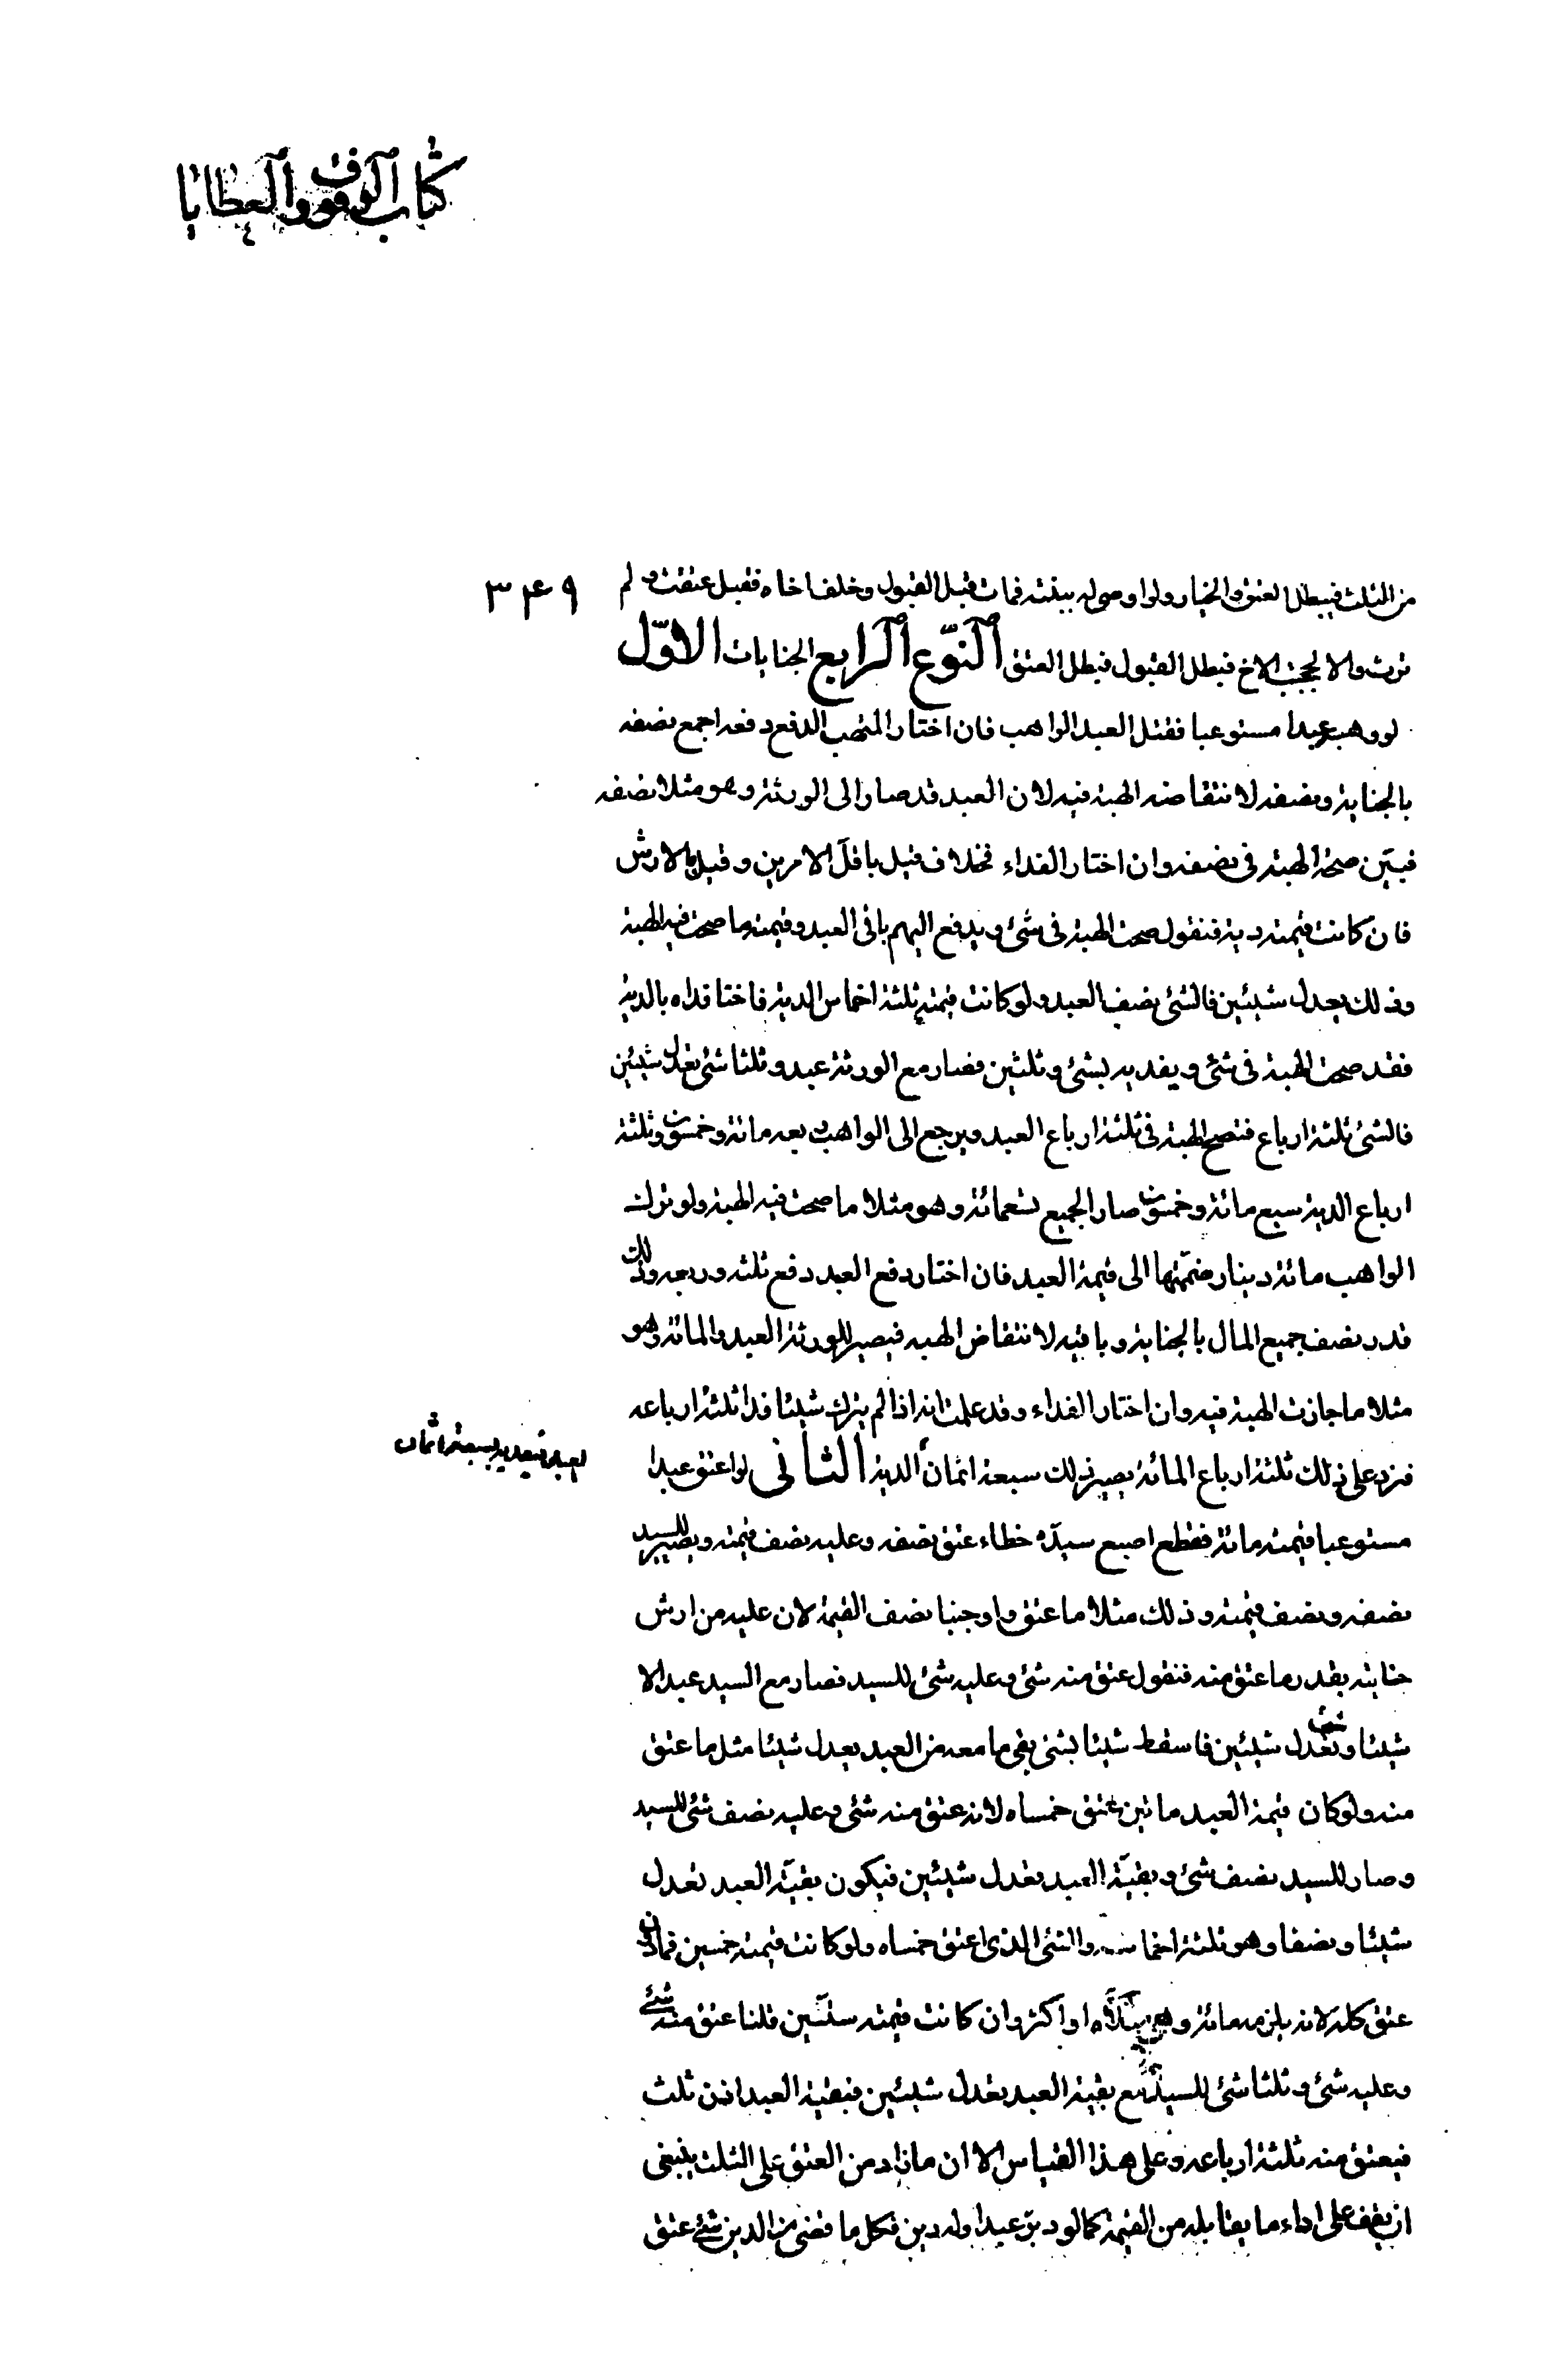 كتاب الوقوف والعطايا
٣٤٩
من الثلث فيبطل العتق والخيار ولو اوصى له ببنته فمات قبل القبول وخلف اخاه فقبل عتقت ولم
ترث والا لحجبت الاخ فبطل القبول فبطل العتق النوّع الرابع الجنايات الاوّل
لو وهب عبدا مستوعبا فقتل العبد الواهب فان اختار المتهب الدفع دفعه اجمع نصفه
بالجناية ونصفه لانتقاض الهبة فيه لان العبد قد صار الى الورثة وهو مثلا نصفه
فتبيّن صحة الهبة في نصفه وان اختار الفداء فخلاف قيل باقلّ الامرين وقيل بالارش
فان كانت قيمته دية فنقول صحت الهبة في شئ ويدفع اليهم باقي العبد وقيمة ما صحت فيه الهبة
وذلك يعدل شيئين فالشئ نصف العبد ولو كانت قيمته ثلثة اخماس الدية فاختا فداه بالدية
فقد صحت الهبة في شئ ويفديه بشئ وثلثين فصار مع الورثة عبد وثلثا شئ يعدل شيئين
فالشئ ثلثة ارباع فتصح الهبة في ثلثة ارباع العبد ويرجع الى الواهب ربعه مائة وخمسون وثلثة
ارباع الدية سبع مائة وخمسون صار الجميع تسعمائة وهو مثلا ما صحت فيه الهبة ولو ترك
الواهب مائة دينار ضمّتها الى قيمة العبد فان اختار دفع العبد دفع ثلثه وربعه وذلك
قدر نصف جميع المال بالجناية وباقيه لانتقاض الهبة فيصير للورثة العبد والمائة وهو
مثلا ما جازت الهبة فيه وان اختار الفداء وقد علمت انه اذا لم يترك شيئا فدا ثلثة ارباعه
فزد على ذلك ثلثة ارباع المائة يصير ذلك سبعة اثمان الدية الثاني لو اعتق عبدا
مستوعبا قيمته مائة فقطع اصبع سيدّه خطاء عتق نصفه وعليه نصف قيمته ويصير للسيد
نصفه ونصف قيمته وذلك مثلا ما عتق واوجبنا نصف القيمة لان عليه من ارش
جنايته بقدر ما عتق منه فنقول عتق منه شئ وعليه شئ للسيد فصار مع السيد عبد الا
شيئا وشئ تعدل شيئين فاسقط شيئا بشئ بقي ما معه من العبد يعدل شيئا مثل ما عتق
منه ولو كان قيمة العبد مائتين عتق خمساه لانه عتق منه شئ وعليه نصف شئ للسيد
وصار للسيد نصف شئ وبقيّة العبد تعدل شيئين فيكون بقيّة العبد تعدل
شيئا ونصفا وهو ثلثة اخماسه والشئ الذي اعتق خمساه ولو كانت قيمته خمسين فمادون
عتق كله لانه يلزمه مائة وهي مثلاه او اكثر وان كانت قيمته ستّين قلنا عتق منه شئ
وعليه شئ وثلثا شئ للسيد مع بقية العبد تعدل شيئين فبقية العبد اذن ثلث
فيعتق منه ثلثة ارباعه وعلى هذا القياس الا ان ما زاد من العتق على الثلث ينبغي
ان يقف على اداء ما يقابله من القيمة كما لو دبّر عبدا وله دين فكل ما قضى من الدين شئ عتق